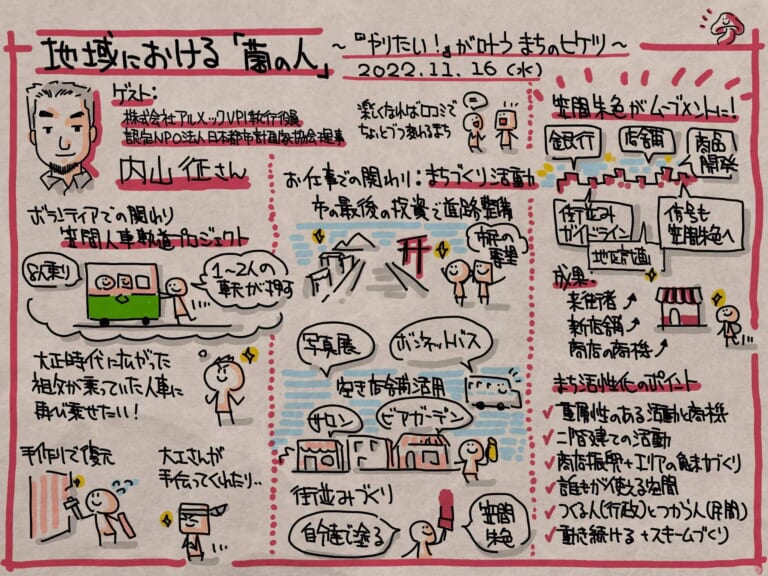 地域における「菌の人」
～『やりたい！』が叶うまちのヒケツ～
2022.11.16(水)
ゲスト：
株式会社アルメックVPI執行役員
認定NPO法人日本都市計画家協会理事
内山 征さん
楽しくなければ口コミで
ちょっとづつ変わるまち
ボランティアでの関わり
笠間人車軌道プロジェクト
8人乗り
1～2人の
車夫が押す
大正時代に広がった
祖父が乗っていた人車に
再び乗せたい！
手作りで復元
大工さんが
手伝ってくれたり‥
お仕事での関わり：まちづくり活動
市の最後の投資で道路整備
市民の
要望
写真展
ボンネットバス
空き店舗活用
サロン
ビアガーデン
街並みづくり
自分達で塗る
笠間
朱色
笠間朱色がムーブメントに！
銀行
店舗
商品
開発
街並み
ガイドライン
地区計画
信号も
笠間朱色へ
成果
来街者↗
新店舗↗
商店の商機↗
まち活性化のポイント
✓重層性のある活動と商機
✓二階建ての活動
✓商店振興＋エリアの魅力づくり
✓誰もが使える空間
✓つくる人(行政)とつかう人(民間)
✓動き続ける＋スキームづくり